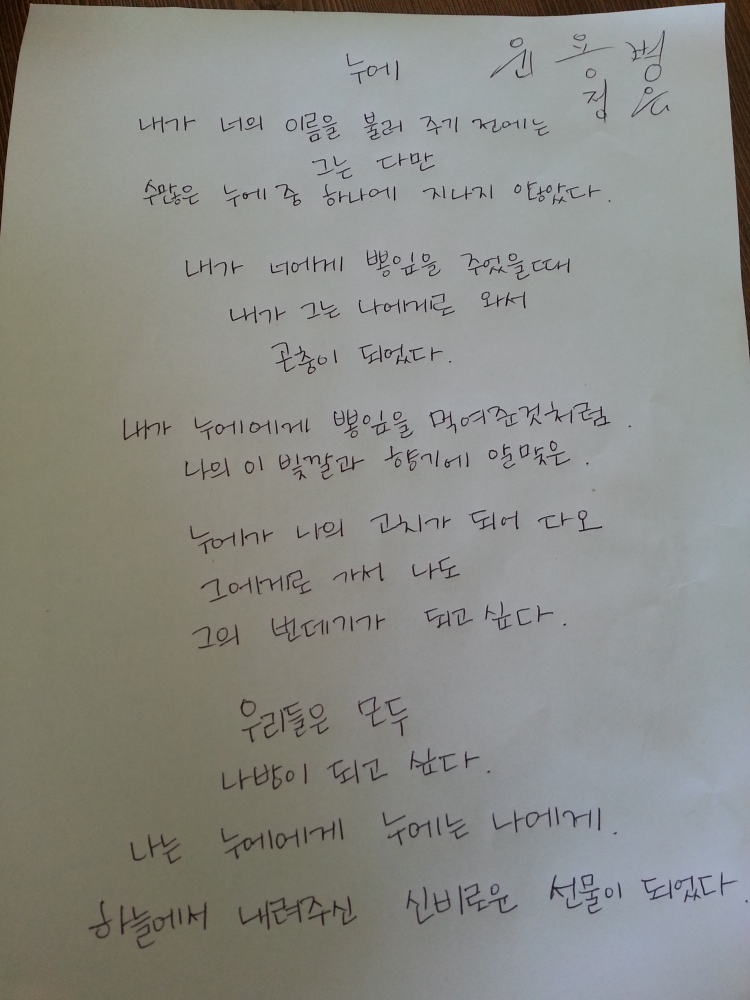 누에
내가 너의 이름을 불러 주기 전에는
그는 다만
수많은 누에 중 하나에 지나지 않았다.
내가 너에게 뽕잎을 주었을때
내가 그는 나에게로 와서
곤충이 되었다.
내가 누에에게 뽕잎을 먹여준것처럼.
나의 이 빛깔과 향기에 알맞은.
누에가 나의 고치가 되어 다오
그에게로 가서 나도
그의 번데기가 되고 싶다.
우리들은 모두
나방이 되고 싶다.
나는 누에에게 누에는 나에게.
하늘에서 내려주신 신비로운 선물이 되었다.